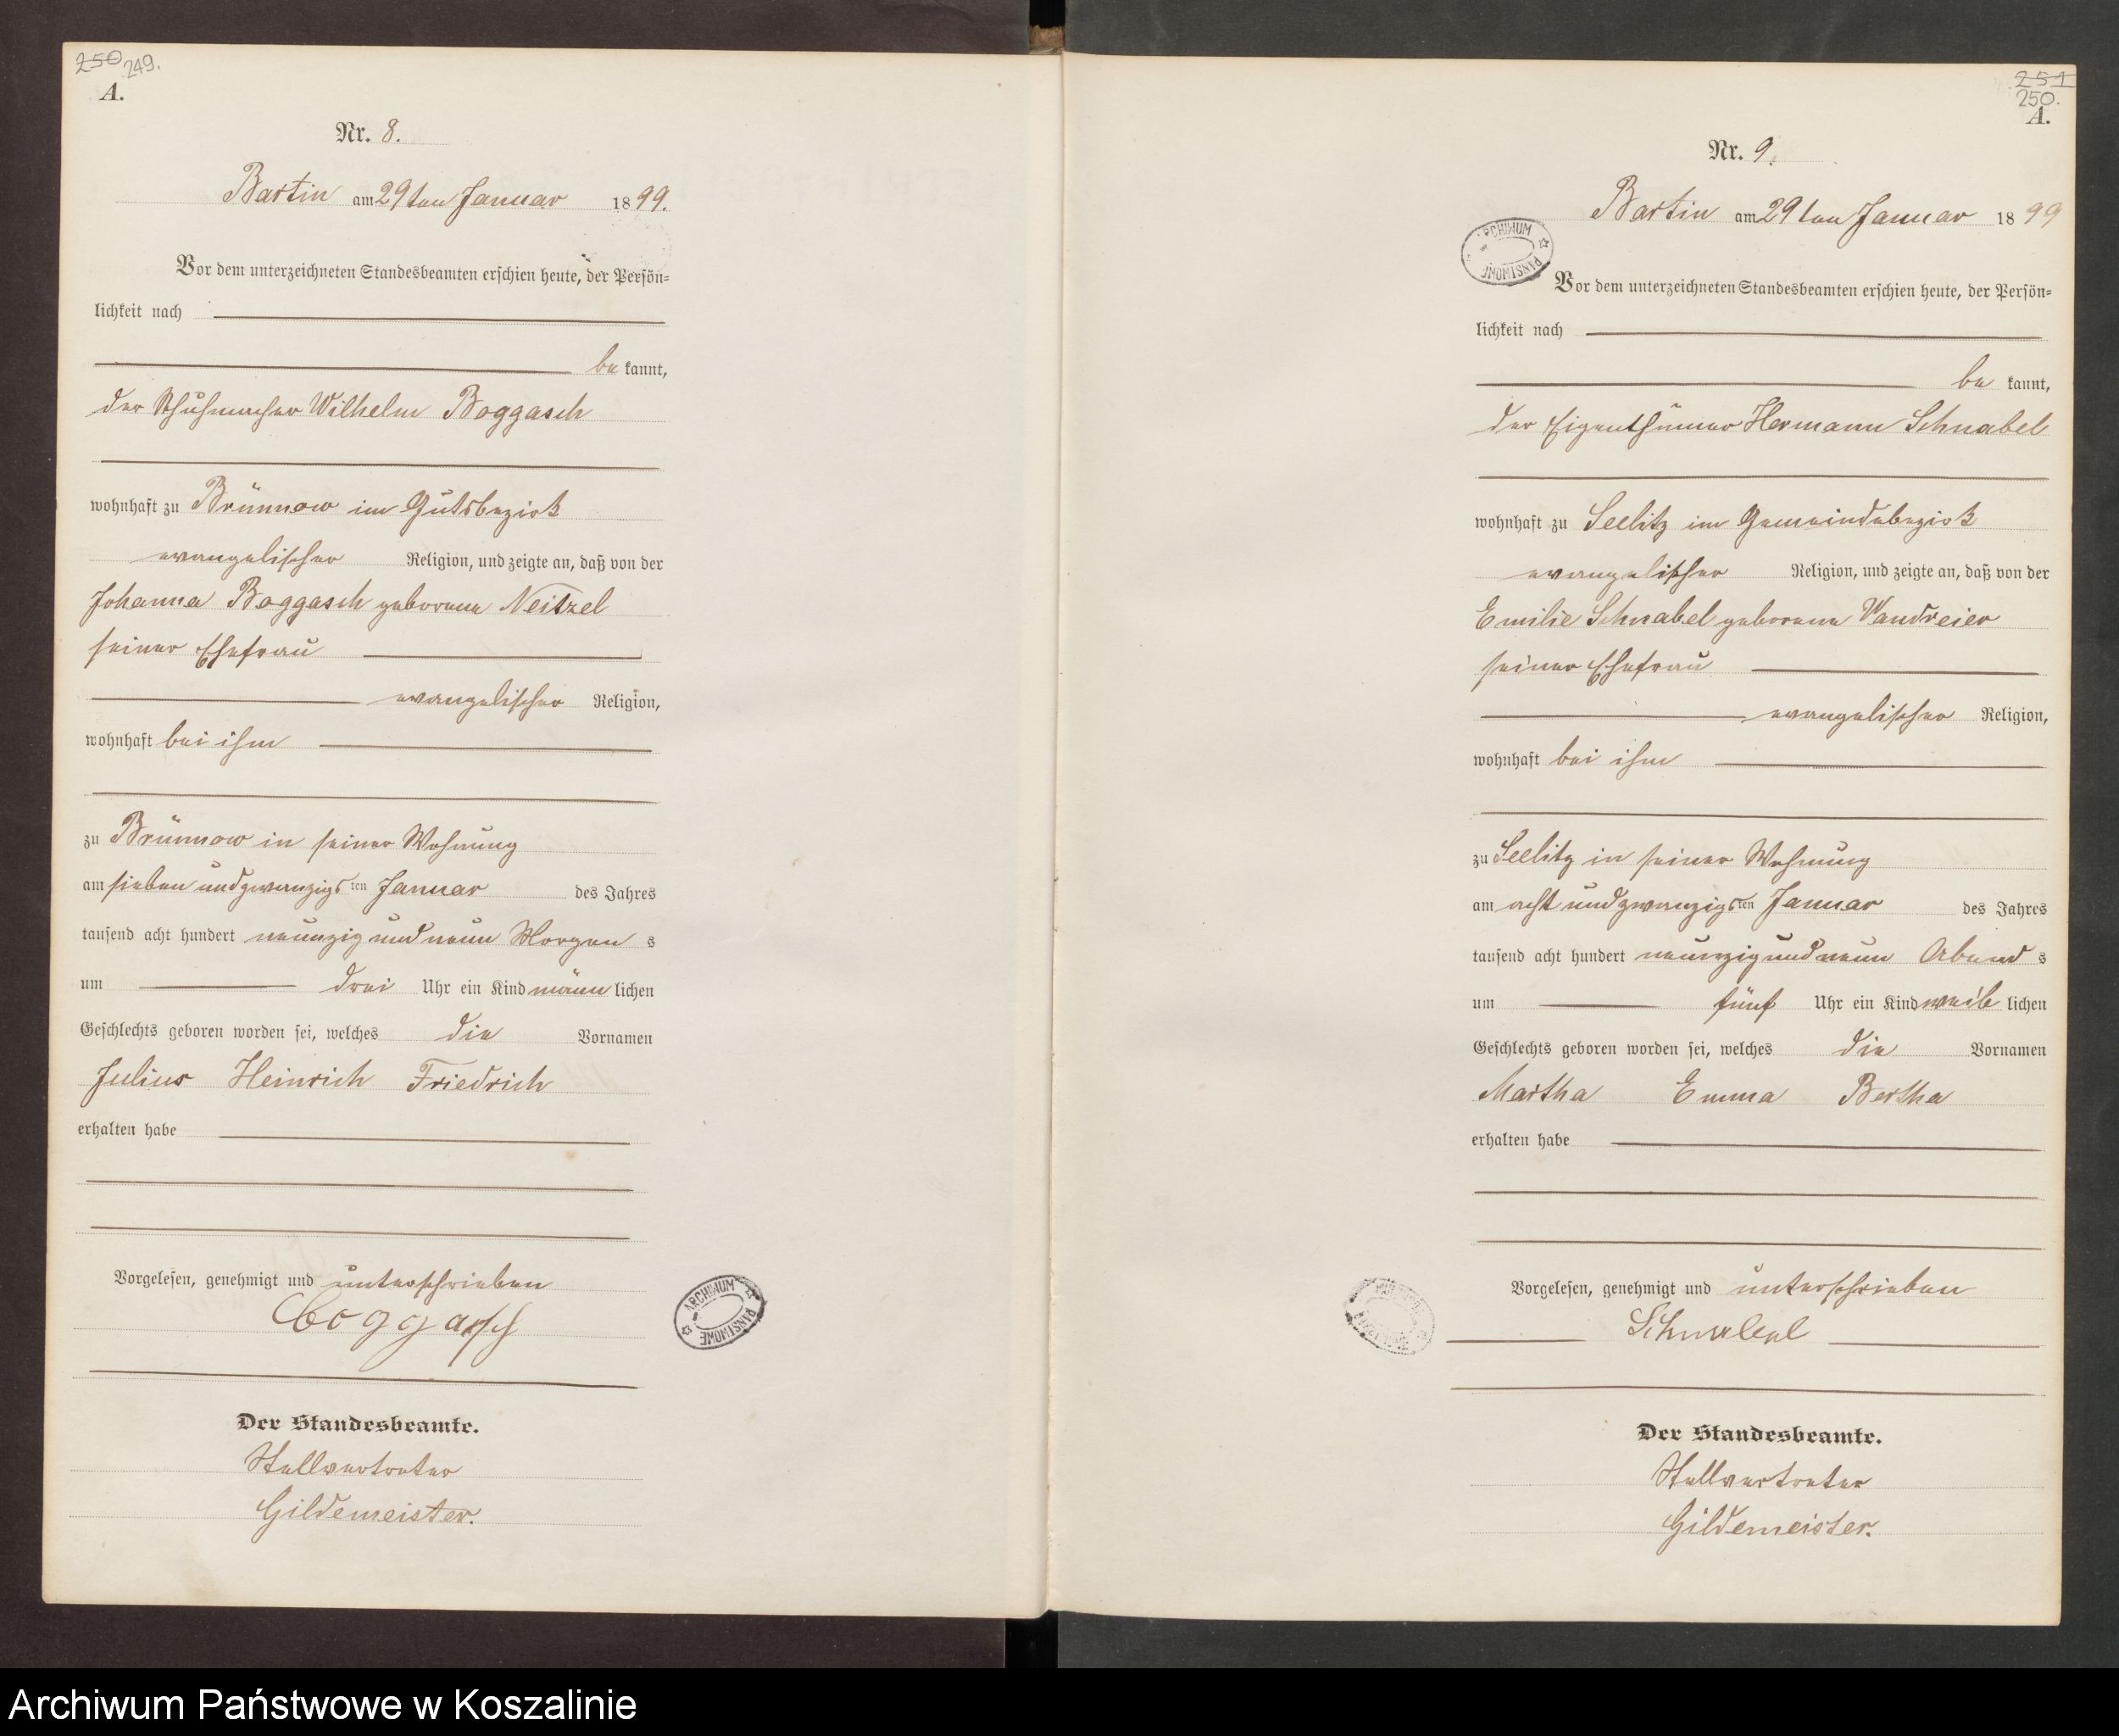 250 249.
A.
Nr. 8.
Bartin am 29ten Januar 1899.
Vor dem unterzeichneten Standesbeamten erschien heute, der Persön=
lichkeit nach
be kannt,
der Schuhmacher Wilhelm Boggasch
wohnhaft zu Brünnow im Gutsbezirk
evangelischer Religion, und zeigte an, daß von der
Johanna Boggasch geborene Neitzel
seiner Ehefrau
evangelischer Religion,
wohnhaft bei ihm
zu Brünnow in seiner Wohnung
am sieben und zwanzigsten Januar des Jahres
tausend acht hundert neunzig und neun Morgen s
um drei Uhr ein Kind männ lichen
Geschlechts geboren worden sei, welches die Vornamen
Julius Heinrich Friedrich
erhalten habe
Vorgelesen, genehmigt und unterschrieben
Boggasch
ARCHIWUM PAŃSTWOWE
Der Standesbeamte.
Stellvertreter
Gildemeister.
251
250.
A.
Nr. 9.
Bartin am 29ten Januar 1899
ARCHIWUM PAŃSTWOWE
Vor dem unterzeichneten Standesbeamten erschien heute, der Persön=
lichkeit nach
be kannt,
der Eigenthümer Hermann Schnabel
wohnhaft zu Seelitz im Gemeindebezirk
evangelischer Religion, und zeigte an, daß von der
Emilie Schnabel geborene Vandreier
seiner Ehefrau
evangelischer Religion,
wohnhaft bei ihm
zu Seelitz in seiner Wohnung
am acht und zwanzigsten Januar des Jahres
tausend acht hundert neunzig und neun Abend s
um fünf Uhr ein Kind weib lichen
Geschlechts geboren worden sei, welches die Vornamen
Martha Emma Bertha
erhalten habe
Vorgelesen, genehmigt und unterschrieben
Schnabel
Der Standesbeamte.
Stellvertreter
Gildemeister.
Archiwum Państwowe w Koszalinie